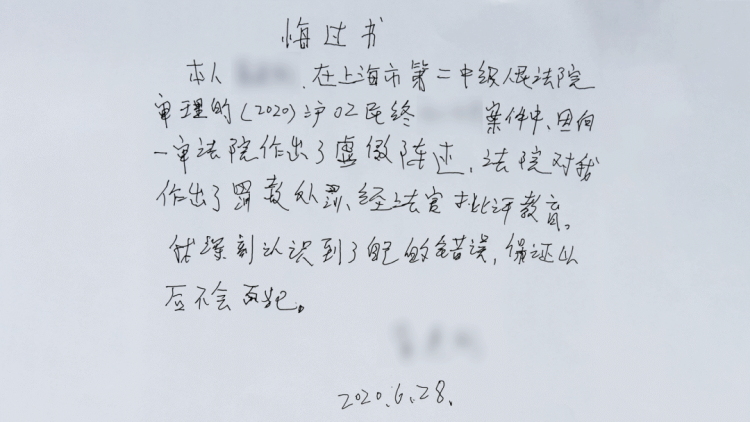 悔过书
本人 ，在上海市第二中级人民法院
审理的（2020）沪02民终 案件中，因向
一审法院作出了虚假陈述，法院对我
作出了罚款处罚，经法官批评教育。
我深刻认识到了自己的错误，保证以
后不会再犯。
2020.6.28.